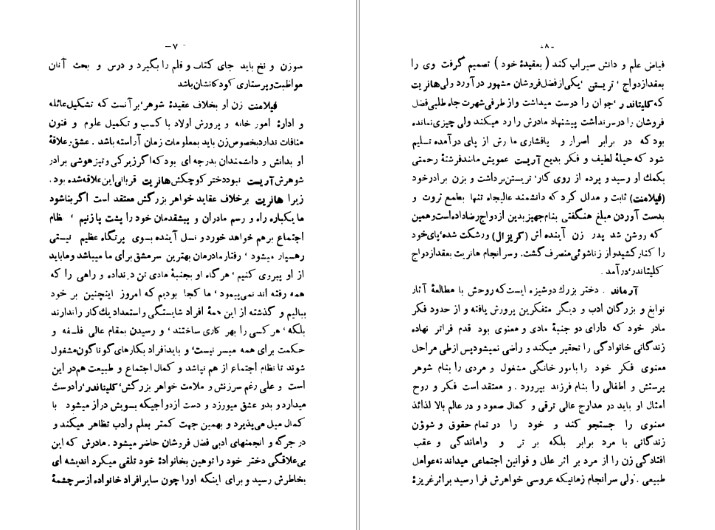 ـ۷ـ
سوزن و نخ باید جای کتاب و قلم را بگیرد و درس و بحث آنان
مواظبت و پرستاری کودکانشان باشد
فیلامنت زن او بخلاف عقیدهٔ شوهر بر آنست که تشکیل عائله
و ادارهٔ امور خانه و پرورش اولاد با کسب و تکمیل علوم و فنون
منافات ندارد بخصوص زن باید بمعلومات زمان آراسته باشد . عشق و علاقهٔ
او بدانش و دانشمندان بدرجه‌ای بود که اگر زیرکی و تیزهوشی برادر
شوهرش آریست نبود دختر کوچکش هانریت قربانی این علاقه شده بود .
زیرا هانریت برخلاف عقاید خواهر بزرگش معتقد است اگر بنا شود
ما یکباره راه و رسم مادران و پیشقدمان خود را پشت پا زنیم ، نظام
اجتماع برهم خواهد خورد و نسل آینده بسوی پرتگاه عظیم نیستی
رهسپار میشود ، رفتار مادرمان بهترین سرمشق برای ما میباشد و ما باید
از او پیروی کنیم ، هرگاه او بجنبهٔ مادی تن درنداده و راهی را که
همه رفته اند نمی‌پیمود ، ما کجا بودیم که امروز اینچنین بر خود
ببالیم و گذشته از این همهٔ افراد شایستگی و استعداد یک کار را ندارند
بلکه هر کسی را بهر کاری ساختند ، و رسیدن بمقام عالی فلسفه و
حکمت برای همه میسر نیست ، و باید افراد بکارهای گوناگون مشغول
شوند تا نظام اجتماع از هم نپاشد و کمال اجتماع و طبیعت هم در این
است و علی رغم سرزنش و ملامت خواهر بزرگش ، کلیتاندر ، را دوست
میدارد و بدو عشق میورزد و دست ازدواجیکه بسویش دراز میشود با
کمال میل می‌پذیرد و بهمین جهت کمتر بعلم و ادب تظاهر میکند و
در جرگه و انجمنهای ادبی فضل فروشان حاضر میشود . مادرش که این
بی‌علاقگی دختر خود را توهین بخانوادهٔ خود تلقی میکرد اندیشه ای
بخاطرش رسید و برای اینکه او را چون سایر افراد خانواده از سرچشمهٔ
ـ۸ـ
فیاض علم و دانش سیراب کند ( بعقیدهٔ خود ) تصمیم گرفت وی را
بعقد ازدواج ' تریستن ' یکی از فضل فروشان مشهور درآورد ولی هانریت
که کلیتاندر جوان را دوست میداشت و از طرفی شهرت جاه طلبی فضل
فروشان را در سر نداشت پیشنهاد مادرش را رد میکند ولی چیزی نمانده
بود که در برابر اصرار و پافشاری مادرش از پای درآمده تسلیم
شود که حیلهٔ لطیف و فکر بدیع آریست عمویش مانند فرشتهٔ رحمتی
بکمک او رسید و پرده از روی کار ' تریستن برداشت و بزن برادر خود
(فیلامنت) ثابت و مدلل کرد که دانشمند عالیجاه تنها بطمع ثروت و
بدست آوردن مبلغ هنگفتی بنام جهیز بدین ازدواج رضا داده است و همین
که روشن شد پدر زن آینده اش (کریزال) ورشکست شده ، پای خود
را کنار کشید و از زناشوئی منصرف گشت . و سرانجام هانریت بعقد ازدواج
کلیتاندر ، درآمد .
آرماند . دختر بزرگ دوشیزه ایست که روحش با مطالعهٔ آثار
نوابغ و بزرگان ادب و دیگر متفکرین پرورش یافته و از حدود فکر
مادر خود که دارای دو جنبهٔ مادی و معنوی بود قدم فراتر نهاده
زندگانی خانوادگی را تحقیر میکند و راضی نمیشود پس از طی مراحل
معنوی فکر خود را بامور خانگی مشغول و مردی را بنام شوهر
پرستش و اطفالی را بنام فرزند بپرورد . و معتقد است فکر و روح
امثال او باید در مدارج عالی ترقی و کمال صعود و در عالم بالا لذائذ
معنوی را جستجو کند و خود را در تمام حقوق و شوؤن
زندگانی با مرد برابر بلکه برتر و واماندگی و عقب
افتادگی زن را از مرد بر اثر علل و قوانین اجتماعی میداند نه عوامل
طبیعی . ولی سرانجام زمانیکه عروسی خواهرش فرا رسید بر اثر غریزهٔ